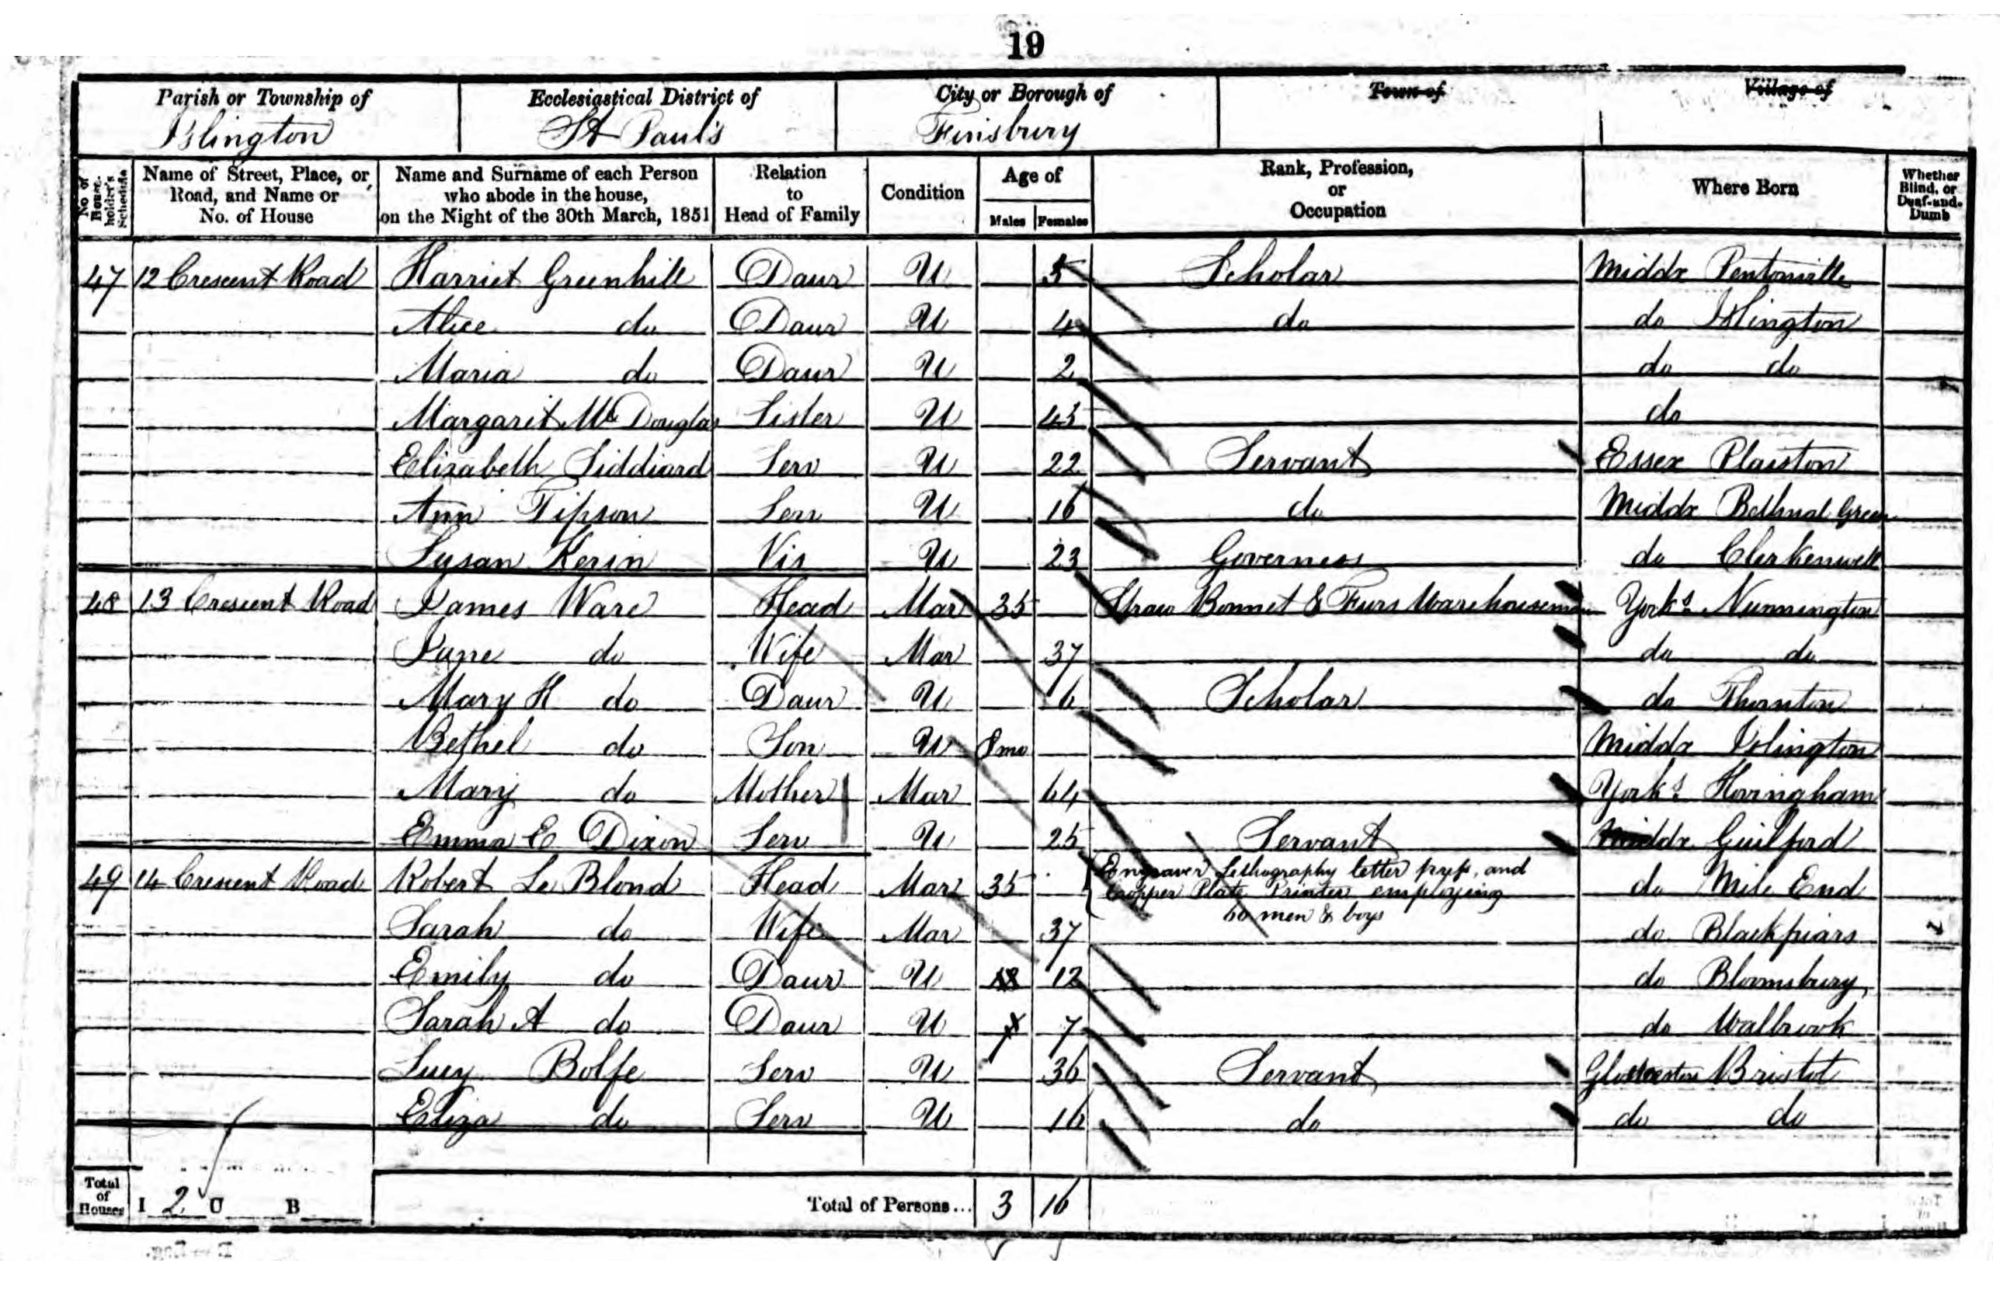 19
Parish or Township of Ecclesiastical District of City or Borough of Town of Village of
Islington St Paul's Finsbury
No of House-holder's Schedule Name of Street, Place, or Road, and Name or No. of House Name and Surname of each Person who abode in the house, on the Night of the 30th March, 1851 Relation to Head of Family Condition Age of Males Females Rank, Profession, or Occupation Where Born Whether Blind, or Deaf-and-Dumb
47 12 Crescent Road Harriet Greenhill Daur U 5 Scholar Middx Pentonville
Alice do Daur U 4 do do Islington
Maria do Daur U 2 do do
Margaret Mc Douglas Sister U 43 do
Elizabeth Siddiard Serv U 22 Servant Essex Plaiston
Ann Tipson Serv U 16 do Middx Bethnal Green
Susan Kerin Vis U 23 Governess do Clerkenwell
48 13 Crescent Road James Ware Head Mar 35 Straw Bonnet & Furs Warehouseman Yorks Nunnington
Jane do Wife Mar 37 do do
Mary H do Daur U 6 Scholar do Thornton
Bethel do Son U 8mo Middx Islington
Mary do Mother Mar 64 Yorks Hovingham
Emma E Dixon Serv U 25 Servant Middx Guilford
49 14 Crescent Road Robert Le Blond Head Mar 35 Engraver Lithography letter press, and Copper Plate Printer employing 60 men & boys do Mile End
Sarah do Wife Mar 37 do Blackfriars
Emily do Daur U 12 do Bloomsbury
Sarah A do Daur U 7 do Walbrook
Lucy Bolfe Serv U 36 Servant Bristol
Eliza do Serv U 16 do do do
Total of Houses I 2 U B Total of Persons... 3 16